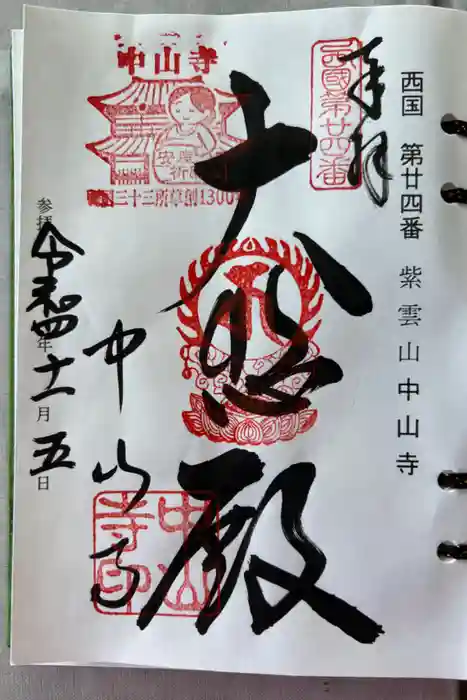 西国　第廿四番　紫雲山中山寺
奉拝
西國第廿四番
大悲殿
中山寺
安産
祈
国三十三所草創1300
中山寺
中山寺印
参拝 令和四年十一月五日